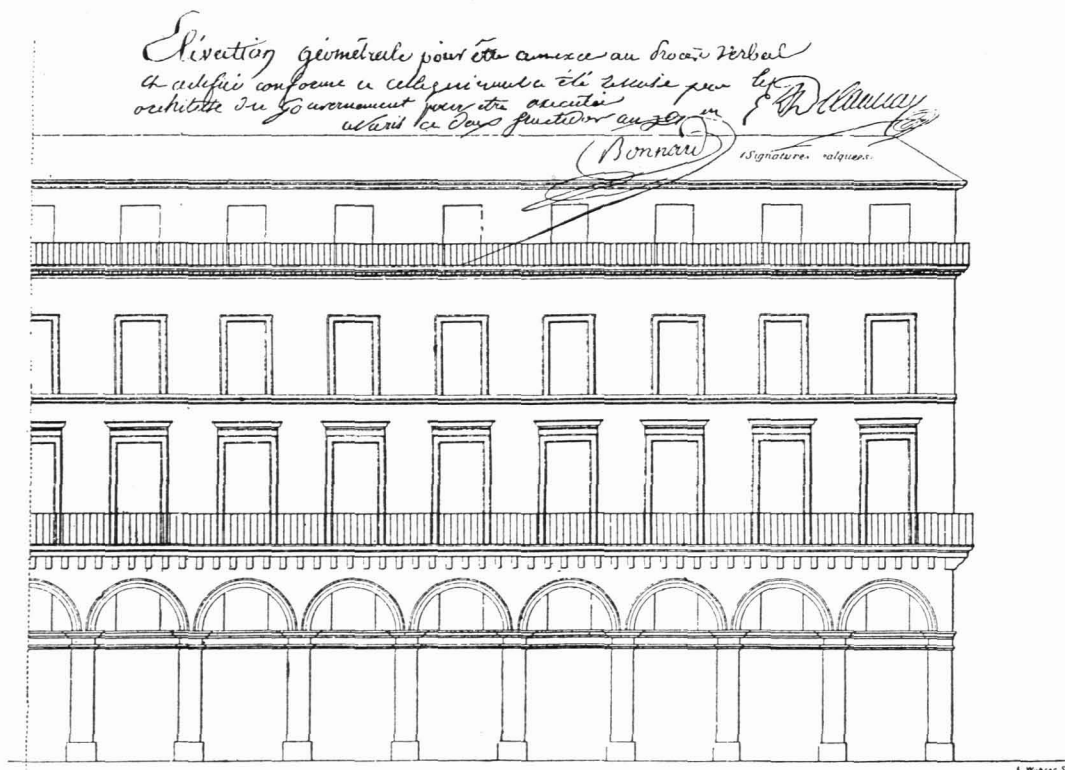 Élévation géométrale pour être annexée au Procès Verbal
et certifiée conforme a celle qui nous a été remise par les
architecte du Gouvernement pour être executée
a Paris ce Douze fructidor an
Bonnard
(Signatures calquées.